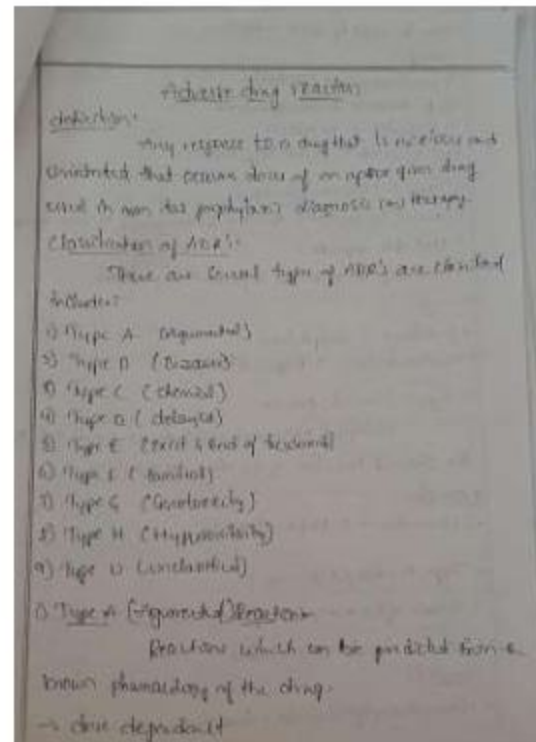 Adverse drug reaction
definition:
Any response to a drug that is noxious and
unintended that occurs dose of given drug
used in man for prophylaxis diagnosis therapy.
Classification of ADR's:-
There are several types of ADR's are classified
includes:
1) Type A (Augmented)
2) Type B (Bizarre)
3) Type C (chemical)
4) Type D (delayed)
5) Type E (Exit & End of treatment)
6) Type F (familial)
7) Type G (Genotoxicity)
8) Type H (Hypersensitivity)
9) Type U (unclassified)
1) Type A (Augmented) Reaction
Reactions which can be predicted from
known pharmacology of the drug.
→ dose dependent